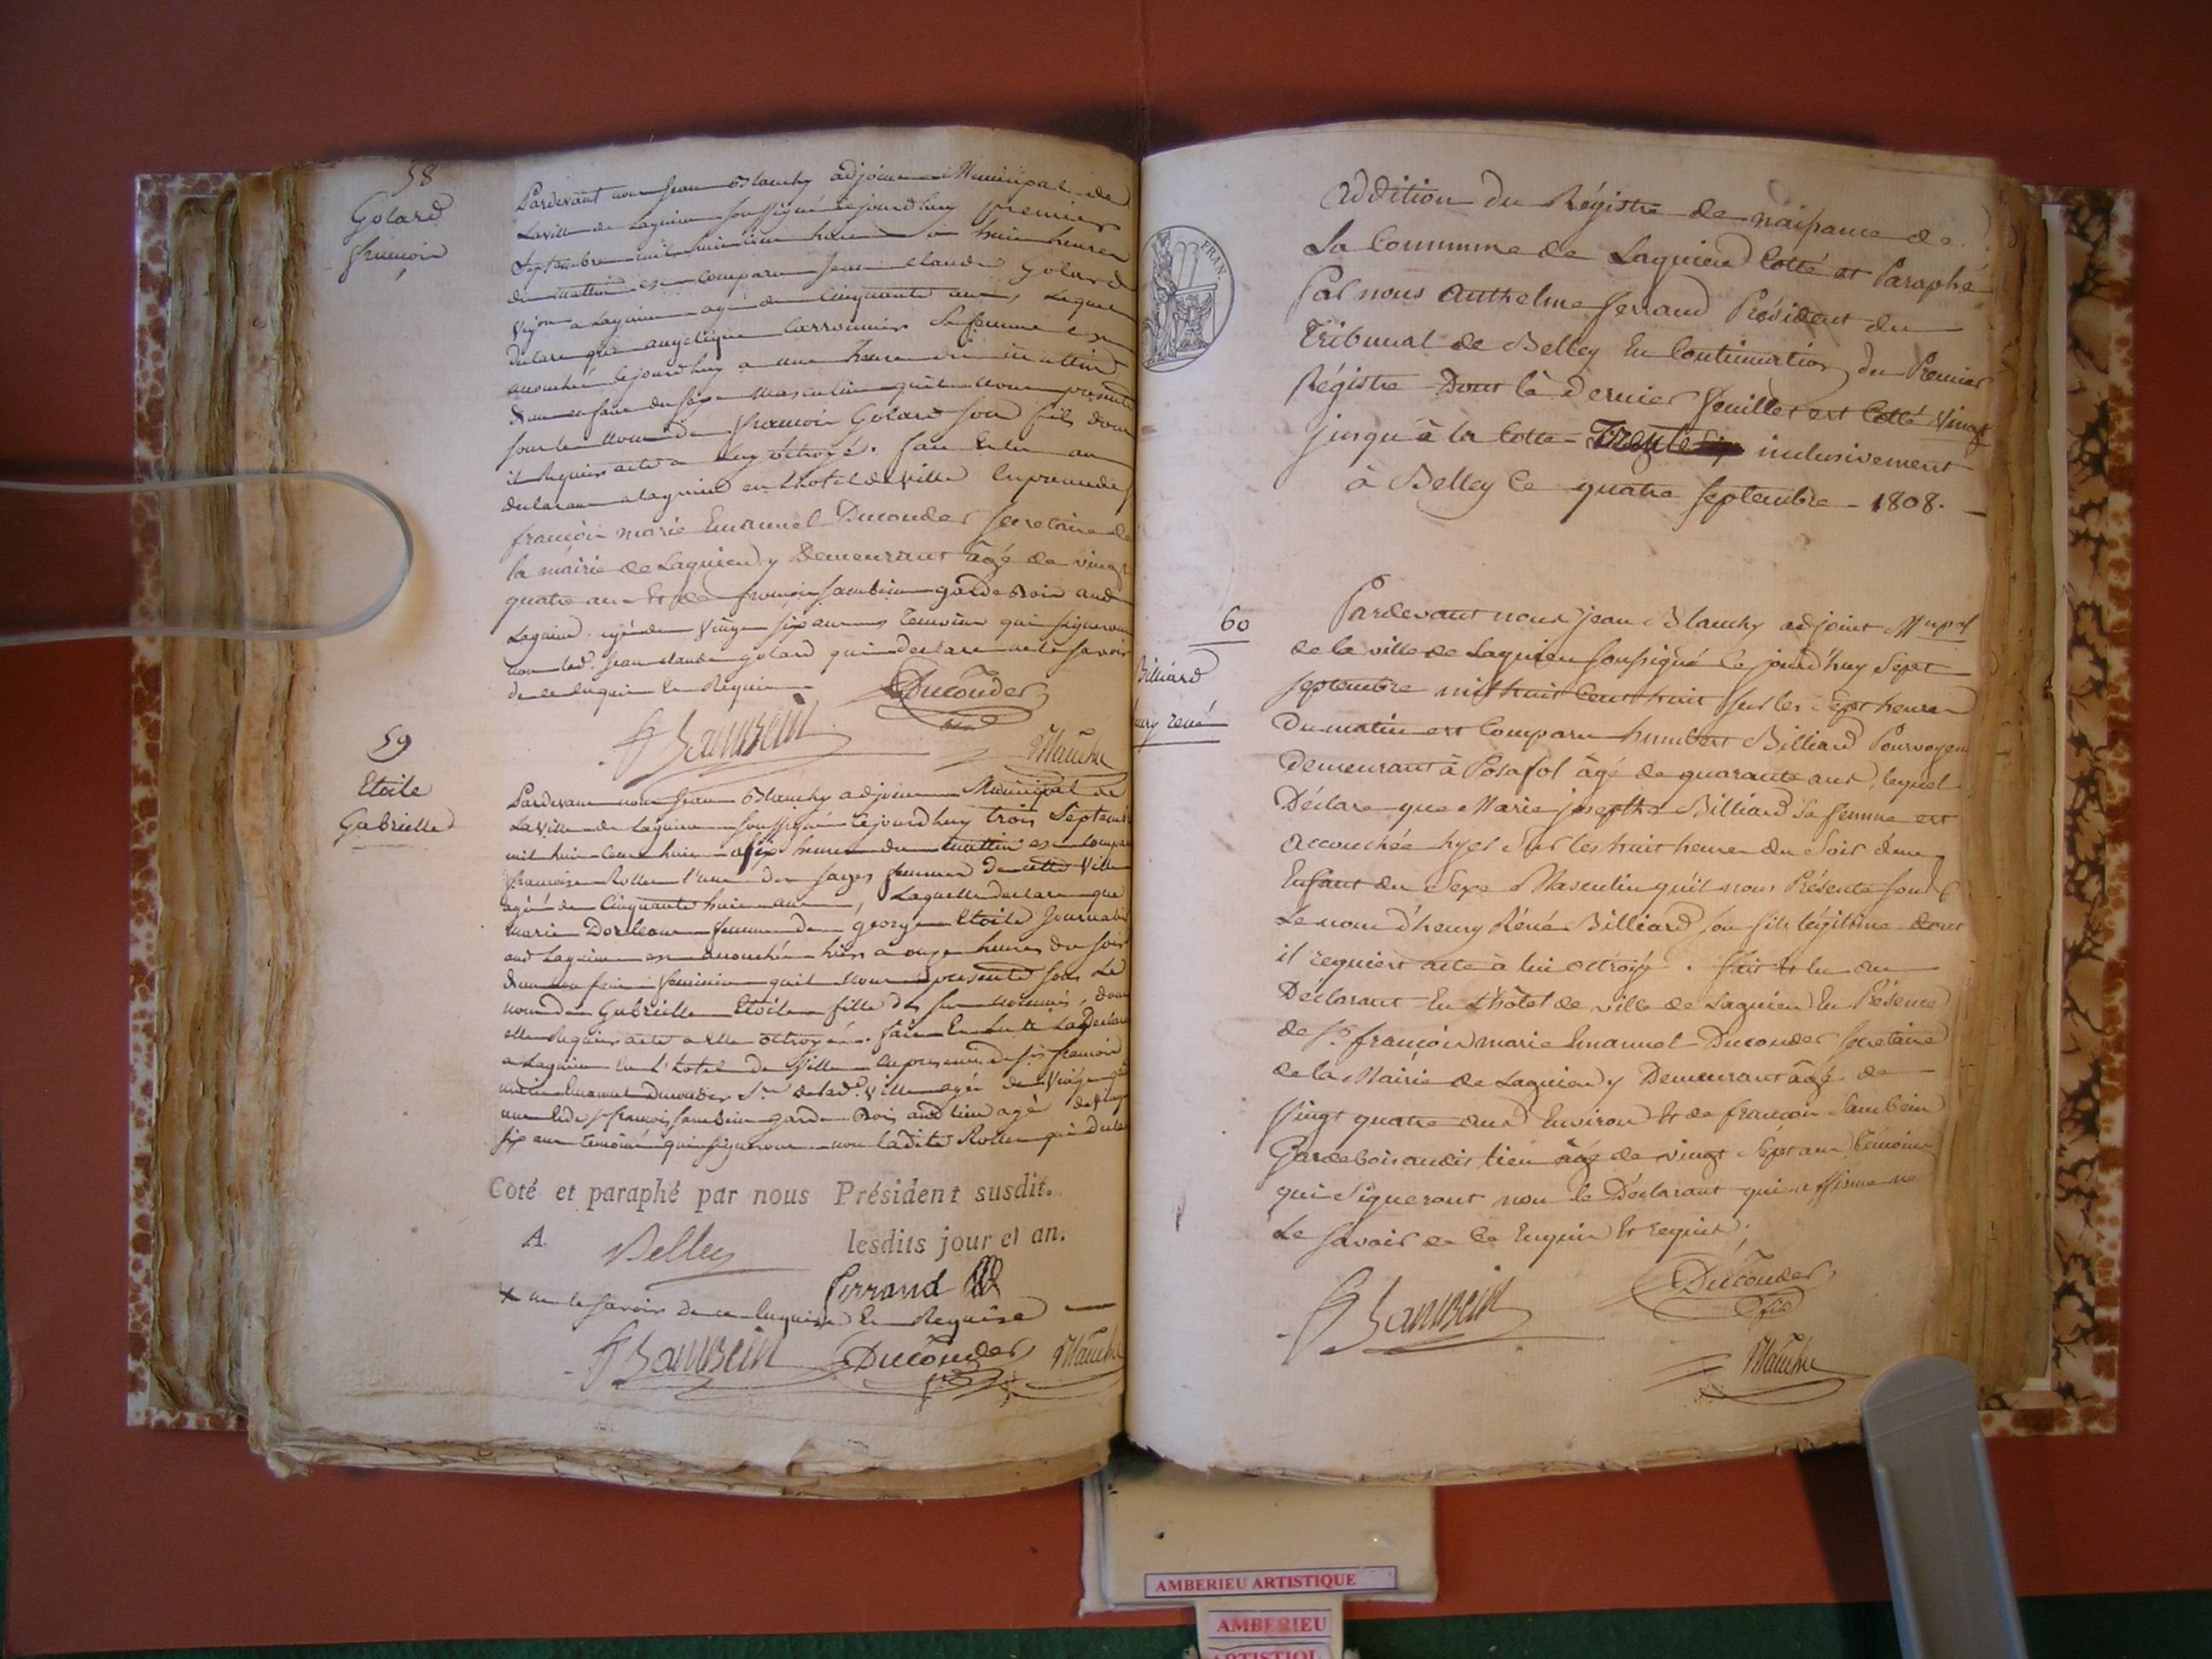 58
Golard
françois
Pardevant nous Jean Blanchy adjoint Municipal de
La ville de Lagnieu soussigné cejourdhuy premier
Septembre mil huit cent huit a huit heures
du mattin est comparu Jean Claude Golard
Vigon a Lagnieu agé de Cinquante ans, Lequel
declare que angelique Carronnier Sa femme est
accouchée cejourdhuy a une heure du mattin
d'un enfant du sexe Masculin qu'il nous presente
sous le nom de françois Golard son fils dont
il Requier acte a luy octroyé. fait et lu au
declarant a lagnieu en l'hotel de ville En presence de
françois marie Emanuel Ducouder secretaire de
la mairie de Lagnieu y Demeurant âgé de vingt
quatre ans Et de françois Sambein garde Bois aud
Lagnieu agé de Vingt six ans Temoins qui signeront
non led. Jean claude golard qui declare ne le savoir
de ce enquis Et Requis
Ducouder
f Sambein
Blanchy
59
Etoile
Gabrielle
Pardevant nous Jean Blanchy adjoint Municipal de
La Ville de Lagnieu soussigné Cejourdhuy trois Septembre
mil huit cent huit a six heures du mattin est comparu
françoise Rollet l'une des sages femmes De cette Ville
agée de Cinquante huit ans, Laquelle declare que
marie Dorleans femme de george Etoile Journalier
aud Lagnieu est accouchée hier a onze heures du soir
d'un enfant feminin quil nous presente sous Le
nom de Gabrielle Etoile fille des sus nommés, dont
elle Requier acte a Elle octroyé. fait Et Lu a La Declarante
a Lagnieu en L'hotel de Ville en presence de sr. françois
marie Emanuel ducouder Sre. de lad. Ville agé de Vingt quatre
ans Et de sr françois Sambein garde Bois aud lieu agé de Vingt
six ans temoins qui signeront non Ladite Rollet qui declare
Coté et paraphé par nous Président susdit.
A Belley lesdits jour et an.
Ferrand
+ ne le savoir de ce Enquise Et Requise
f Sambein Ducouder Blanchy
FRAN
Addition du Régistre de naissance de
La Commune de Lagnieu Cotté et Paraphé
Par nous Anthelme ferrand Président du
Tribunal de Belley En Continuation du Premier
Régistre Dont le Dernier feuillet est Cotté Vingt
jusqu'à la Cotte Trente inclusivement
à Belley Ce quatre septembre 1808.
60
Billiard
henry rené
Pardevant nous jean Blanchy adjoint Mupal
de la ville de Lagnieu soussigné Ce jourd'huy Sept
septembre mil huit Cent huit sur les Sept heures
Du matin est Comparu humbert Billiard Pourvoyeur
Demeurant à Posafol âgé de quarante ans, lequel
Déclare que Marie josephte Billiard Sa femme est
accouchée hyer Sur les huit heures du Soir d'un
Enfant du Sexe Masculin qu'il nous Présente sous
Le nom d'henry Réné Billiard son fils légitime dont
il requiert acte à lui octroyé. fait Et lu au
Déclarant En L'hôtel de ville de Lagnieu En Présence
de Sr. françois marie Emanuel Ducouder secretaire
de la Mairie de Lagnieu y Demeurant âgé de
Vingt quatre ans Environ Et de françois Sambein
Gardebois audit lieu âgé de vingt Sept ans, témoins
qui Signeront non le Déclarant qui affirme ne
Le savoir de Ce Enquis Et requis,
f Sambein
Ducouder
Blanchy
AMBERIEU ARTISTIQUE
AMBERIEU
ARTISTIQUE